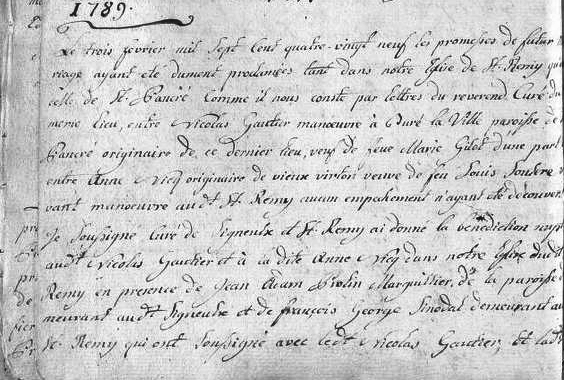 1789.
Le trois fevrier mil sept cent quatre-vingt neuf les promesses de futur
riage ayant eté dument proclamées tant dans notre Eglise de St. Remy qu
celle de St. Pancré Comme il nous conste par lettres du reverend Curé du
meme lieu, entre Nicolas Gautier manœuvre à Buré la Ville paroisse de
Pancré originaire de ce dernier lieu, veuf de feue Marie Gilet d'une part
entre Anne Nicq originaire de vieux virton veuve de feu Louis
vant manœuvre audt St. Remy aucun empechement n'ayant eté decouver
Je soussigné Curé de Signeulx et St. Remy ai donné la benediction nupt
audt Nicolas Gautier et à la dite Anne Nicq dans notre Eglise dudt
Remy en presence de Jean Adam Marguillier de la paroisse
meurant audt Signeulx et de françois George Sinodal demeurant au
St. Remy qui ont soussigné avec ledt Nicolas Gautier, et ladt